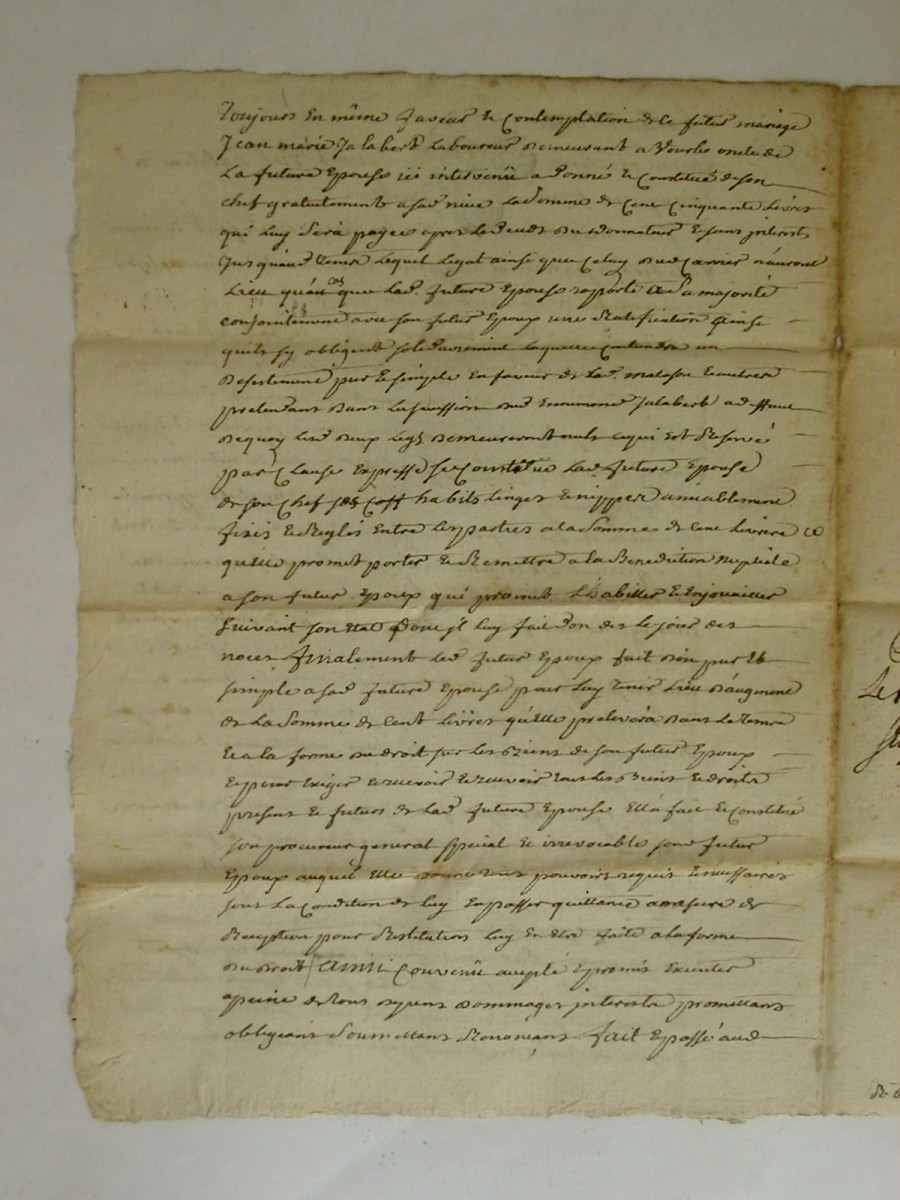 Toujours En même faveur Et Contemplation de Ce futur mariage
Jean marie Jalabert Laboureur Demeurant a Vourles oncle de
La future Epouse ici intervenü a Donné Et Constitué de son
chef gratuitement a sad. niece La Somme de Cent Cinquante Livres
qui Luy Sera payée apres Le Deceds du donnateur Et sans jnterests
Jusquaud. tems Lequel Legat ainsi que Celuy dud. Carrier n'auront
Lieu qu'au cas que Lad. future Epouse rapporte a Sa majorité
conjointement avec son futur Epoux une Ratiffication ainsi
quils sy obligent solidairement laquelle Contendra un
Desistement pur Et simple En faveur de Lad. Et autres
pretendants Dans La succession dud. Ennemond Jalabert a deffaut
Dequoy Lesd. Deux Legs Demeureront nuls Ce qui Est Reservé
par Clause Expresse se Constitue Lad. future Epouse
de son Chef ses Coff. habits linges Et nippes amiablement
fixés Et Reglés Entre Les parties a la Somme de Cent Livres Ce
qu'elle promet porter Et Remettre a La Benediction Nuptiale
a son futur Epoux qui promet L'habiller Et Enjouailler
Suivant Son Etat Dont jl luy fait Don des Le jour des
noces finalement Led. futur Epoux fait Don pur Et
simple a sad. future Epouse pour Luy tenir Lieu D'augment
de La Somme de Cent Livres qu'Elle prelevera Dans Le tems
Et a la forme du droit sur Les Biens de son futur Epoux
Et pour Exiger Et recevoir tous Les Biens Et droits
present Et futurs de Lad. future Epouse Ella fait Et Constitué
son procureur general special Et irrevocable sond. futur
Epoux auquel Elle Donne tous pouvoirs requis Et necessaires
sous La Condition de Luy En passer quittance a mesure de
Reception pour Restitution Luy En Etre faite a la forme
du droit Ainsi Convenü accepté Et promis Executer
a peine de tous depens Dommages jnterests promettans
obligeans Soumettans Renonceans fait Et passé aud.